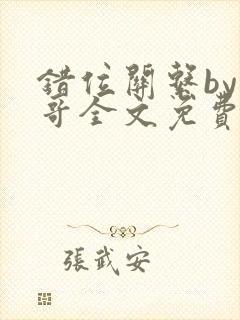 錯位關系by
哥全文免費
張武安